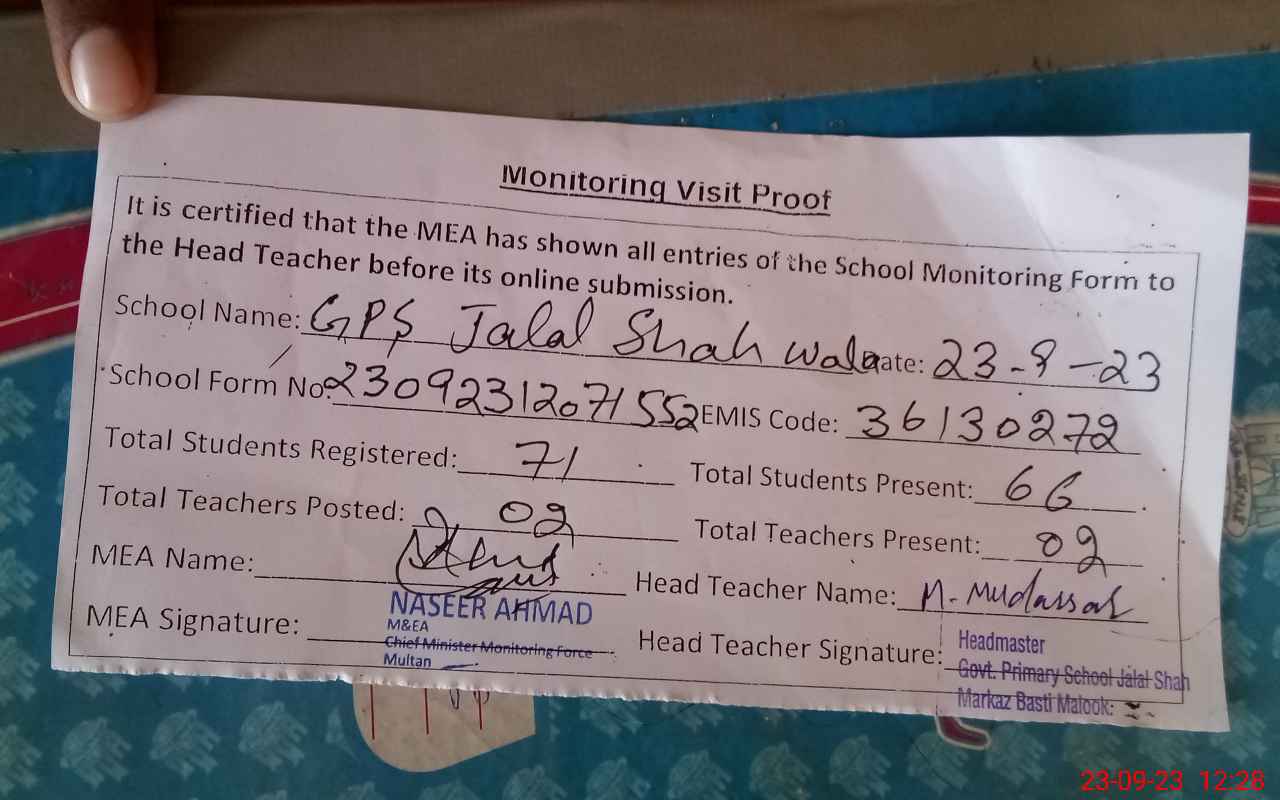 Monitoring Visit Proof
It is certified that the MEA has shown all entries of the School Monitoring Form to
the Head Teacher before its online submission.
School Name: GPS Jalal Shah wala Date: 23-9-23
School Form No: 23092312071552 EMIS Code: 36130272
Total Students Registered: 71 Total Students Present: 66
Total Teachers Posted: 02 Total Teachers Present: 02
MEA Name: Head Teacher Name: M. Mudassar
MEA Signature: Head Teacher Signature:
NASEER AHMAD
M&EA
Chief Minister Monitoring Force
Multan
Headmaster
Govt. Primary School Jalal Shah
Markaz Basti Malook:
23-09-23 12:28